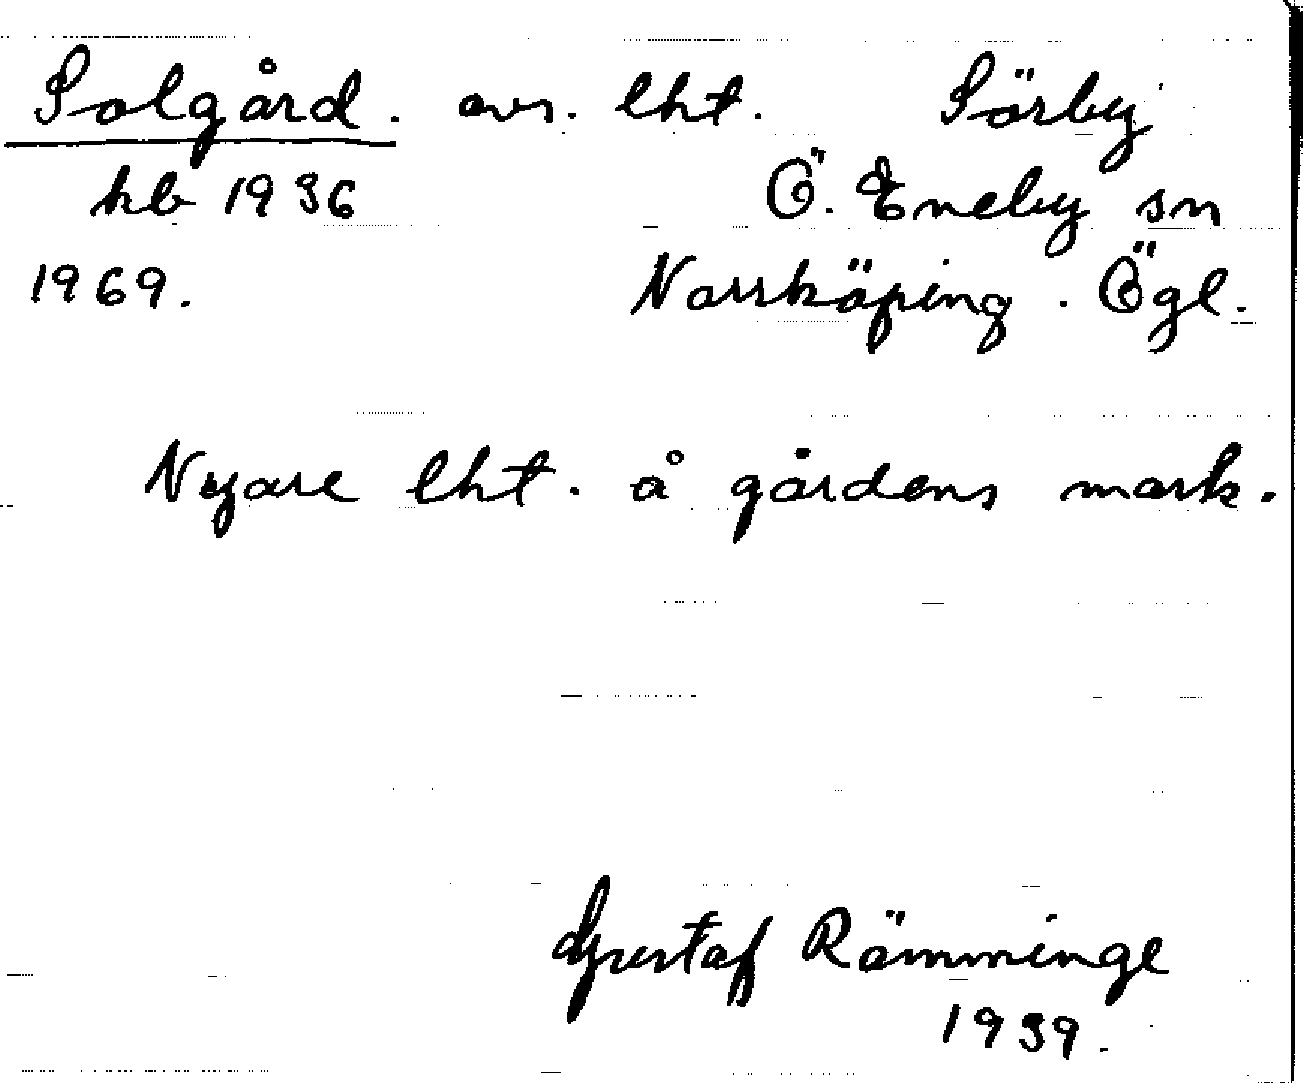 Solgård. avs. lht. Sörby
hb 1936 Ö. Eneby sn
1969. Norrköping. Ögl.
Nyare lht. å gårdens mark.
Gustaf Römminge
1939.